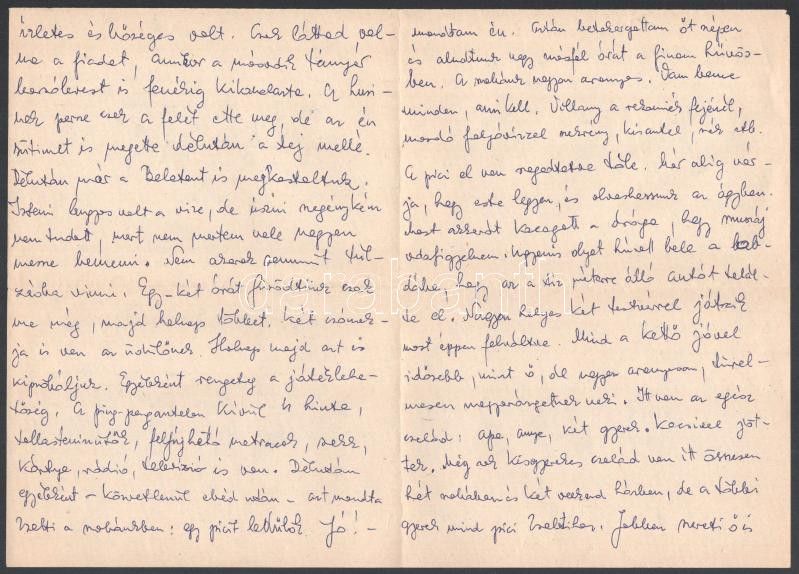 ízletes és bőséges volt. Csak láttad vol-
na a fiadat, amikor a második tányér
is fenékig kikanalazta. A hús-
nak persze csak a felét ette meg, de az én
sütimet is megette délután a tej mellé.
Délután már a Balatont is megkóstoltuk.
Isteni langyos volt a vize, de úszni szegénykém
nem tudott, mert nem mertem vele nagyon
messze bemenni. Nem akarok semmit túl-
zásba vinni. Egy-két órát fürödtünk csak
ma még, majd holnap többet. Két csónak-
ja is van az üdülőnek. Holnap majd azt is
kipróbáljuk. Egyébként rengeteg a játéklehe-
tőség. A ping-pongasztalon kívül is hinta,
tollasteniszütők, felfújható matracok, sakk,
kártya, rádió, televízió is van. Délután
egyébként – közvetlenül ebéd után – azt mondta
Zsolti a szobánkban: egy picit ledűlök. Jó! –
mondtam én. Aztán betakargattam őt szépen
és aludtunk vagy másfél órát a finom hűvös-
ben. A szobánk nagyon aranyos. Van benne
minden, ami kell. Villany a rekamiék fejénél,
mosdó folyóvízzel szekrény, kisasztal, szék stb.
A pici el van ragadtatva tőle. Már alig vár-
ja, hogy este legyen, és olvashassunk az ágyban.
Most azzal kacagott a drága, hogy muszáj
odafigyelnem. Ugyanis olyat húzott bele a lab-
dába, hogy az a tíz méterre álló autót talál-
ta el. Nagyon helyes két testvérrel játszik
most éppen felváltva. Mind a kettő jóval
idősebb, mint ő, de nagyon aranyosan, türel-
mesen magyarázgatnak neki. Itt van az egész
család: apa, anya, két gyerek. Kocsival jöt-
tek. Még sok kisgyerekes család van itt összesen
hét szobában és két weekend házban, de a többi
gyerek mind pici Zsoltihoz. Jobban szereti ő is
darabanth